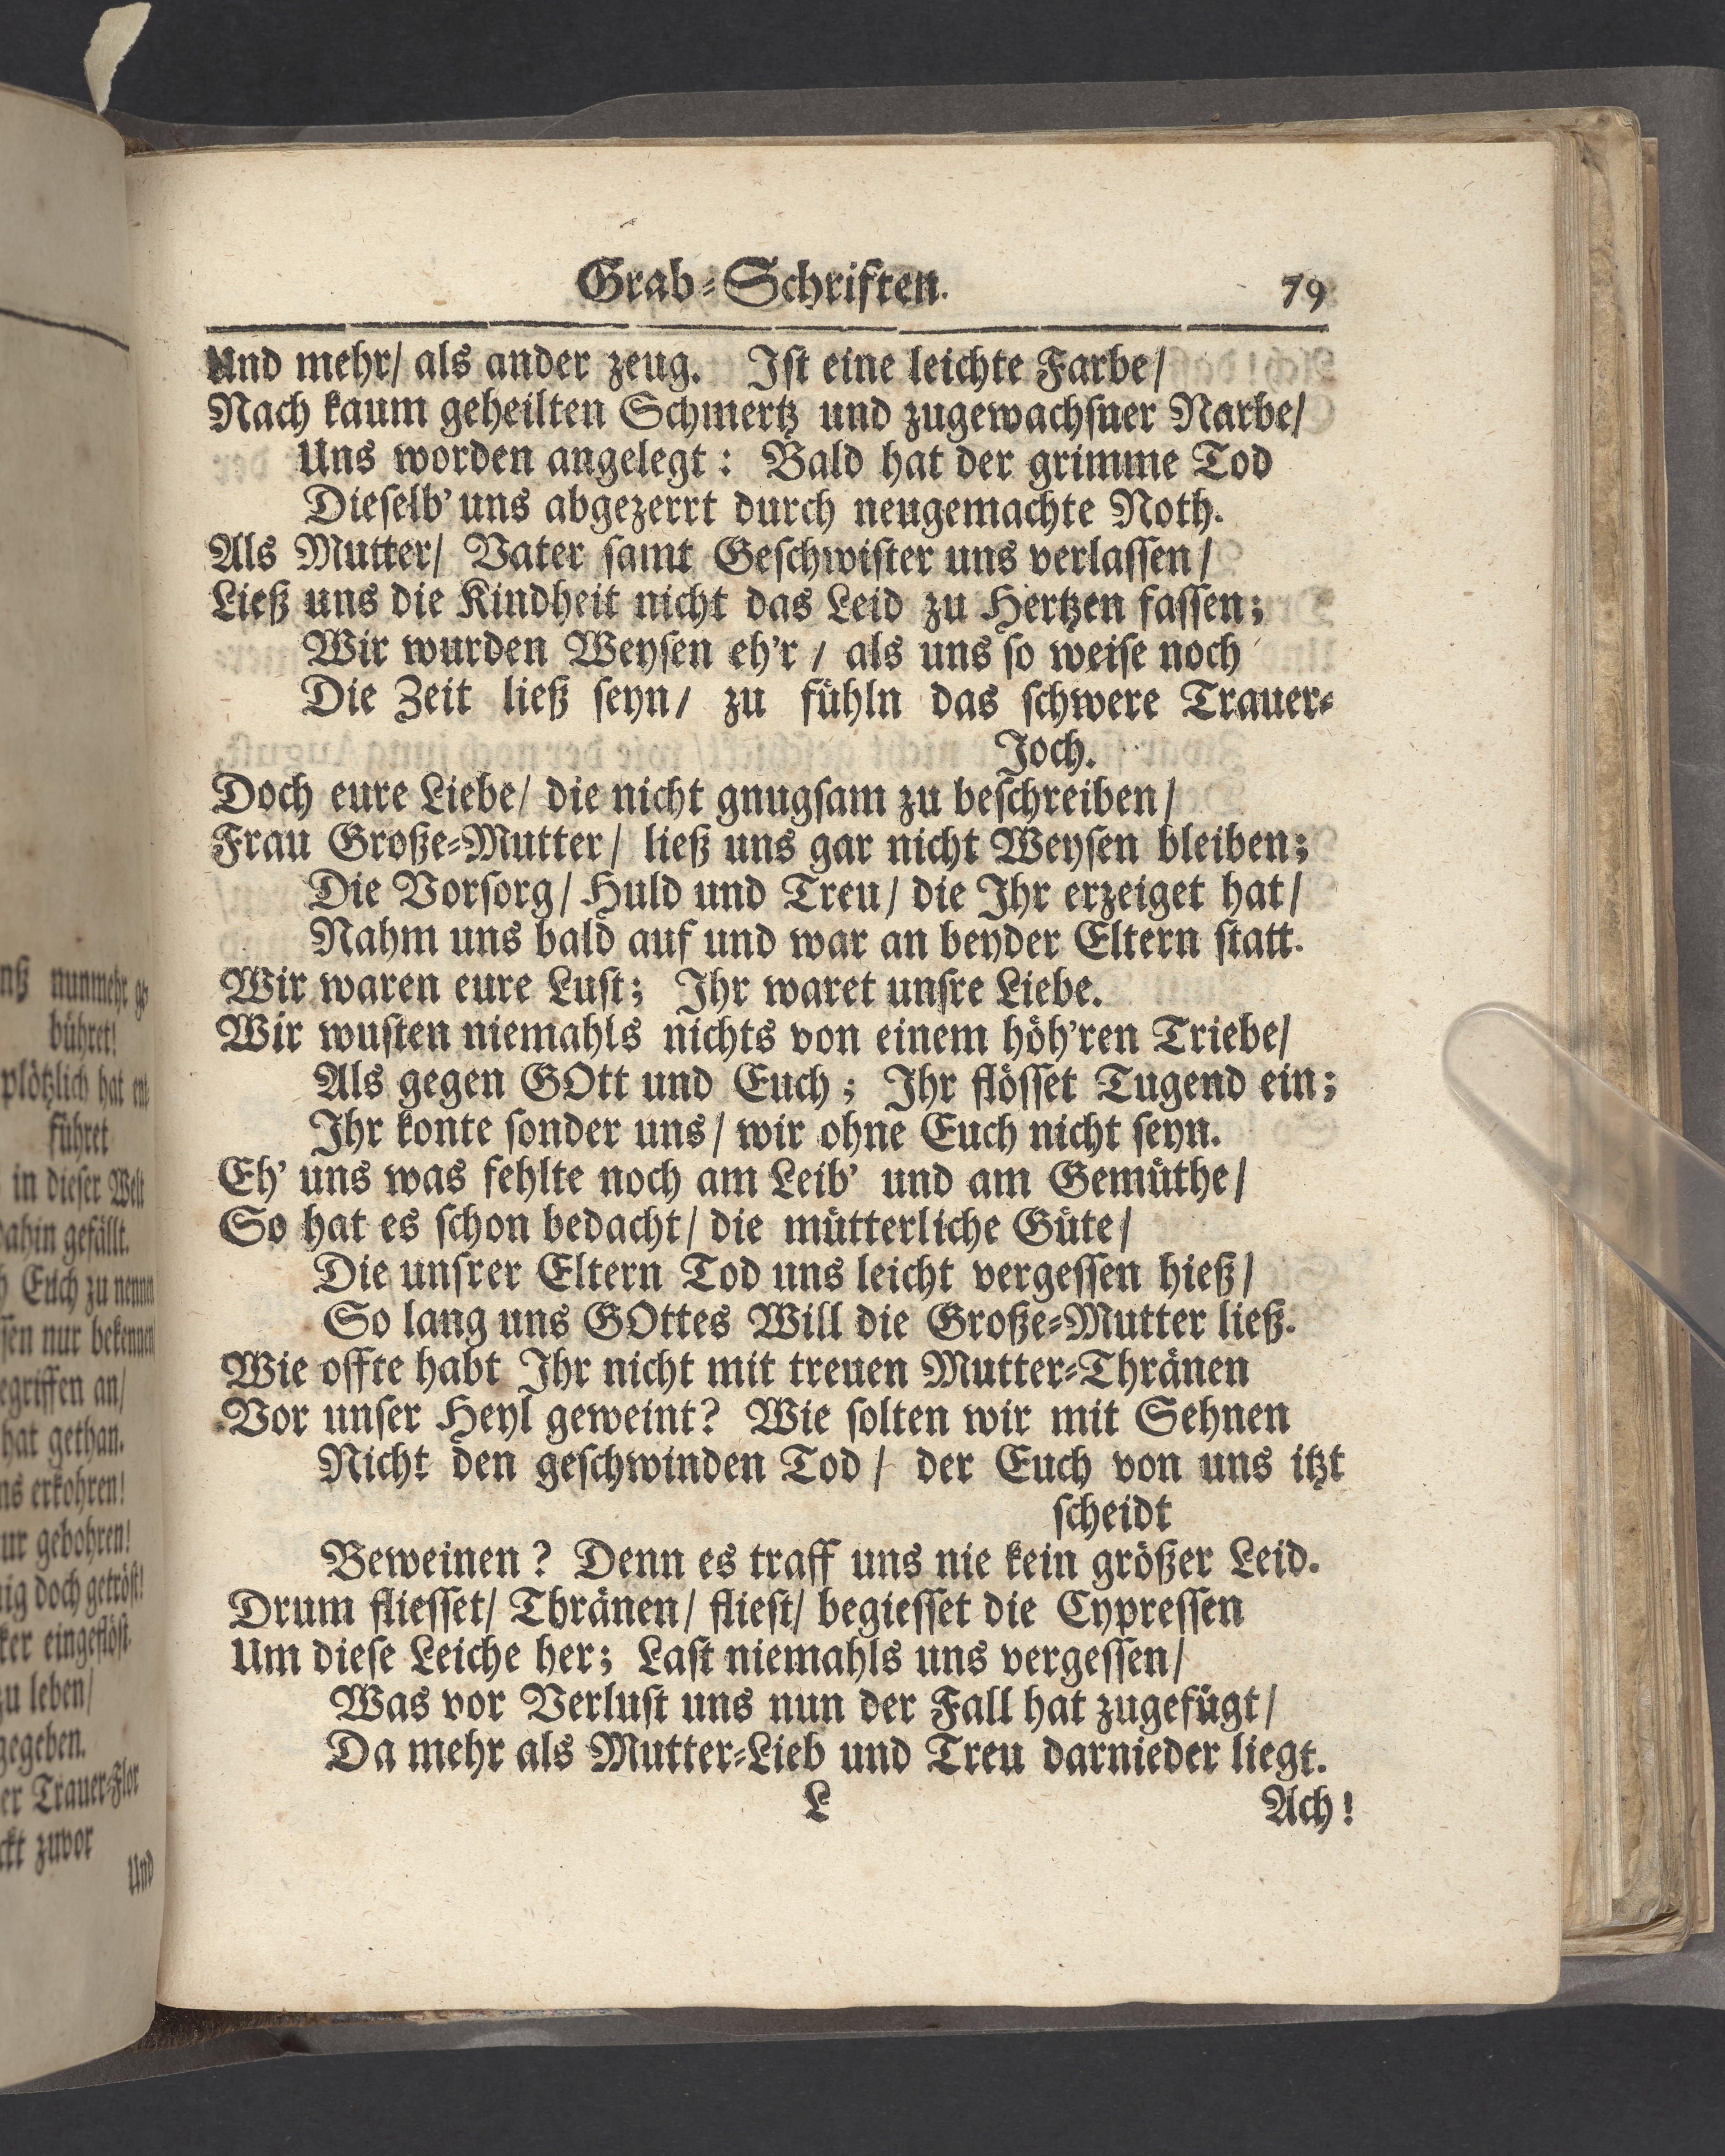 Grab-Schriften. 79
Und mehr/ als ander zeug. Iſt eine leichte Farbe/
Nach kaum geheilten Schmertz und zugewachſner Narbe/
Uns worden angelegt: Bald hat der grimme Tod
Dieſelb' uns abgezerrt durch neugemachte Noth.
Als Mutter/ Vater ſamt Geſchwiſter uns verlaſſen/
Ließ uns die Kindheit nicht das Leid zu Hertzen faſſen;
Wir wurden Weyſen eh'r / als uns ſo weiſe noch
Die Zeit ließ ſeyn/ zu fühln das ſchwere Trauer-
Joch.
Doch eure Liebe/ die nicht gnugſam zu beſchreiben/
Frau Große-Mutter/ ließ uns gar nicht Weyſen bleiben;
Die Vorſorg/ Huld und Treu/ die Ihr erzeiget hat/
Nahm uns bald auf und war an beyder Eltern ſtatt.
Wir waren eure Luſt; Ihr waret unſre Liebe.
Wir wuſten niemahls nichts von einem höh'ren Triebe/
Als gegen GOtt und Euch; Ihr flöſſet Tugend ein;
Ihr konte ſonder uns/ wir ohne Euch nicht ſeyn.
Eh' uns was fehlte noch am Leib' und am Gemüthe/
So hat es ſchon bedacht/ die mütterliche Güte/
Die unſrer Eltern Tod uns leicht vergeſſen hieß/
So lang uns GOttes Will die Große-Mutter ließ.
Wie offte habt Ihr nicht mit treuen Mutter-Thränen
Vor unſer Heyl geweint? Wie ſolten wir mit Sehnen
Nicht den geſchwinden Tod/ der Euch von uns itzt
ſcheidt
Beweinen? Denn es traff uns nie kein größer Leid.
Drum flieſſet/ Thränen/ flieſt/ begieſſet die Cypreſſen
Um dieſe Leiche her; Laſt niemahls uns vergeſſen/
Was vor Verluſt uns nun der Fall hat zugefügt/
Da mehr als Mutter-Lieb und Treu darnieder liegt.
L Ach!
nunmehr
bühret!
plötzlich hat
führet
in dieſer Welt
dahin gefällt.
Euch zu nennen
nur bekennen
an/
hat gethan.
erkohren!
gebohren!
doch getröſt!
eingeflöſt.
zu leben/
gegeben.
Trauer-Flor
zuvor
Und